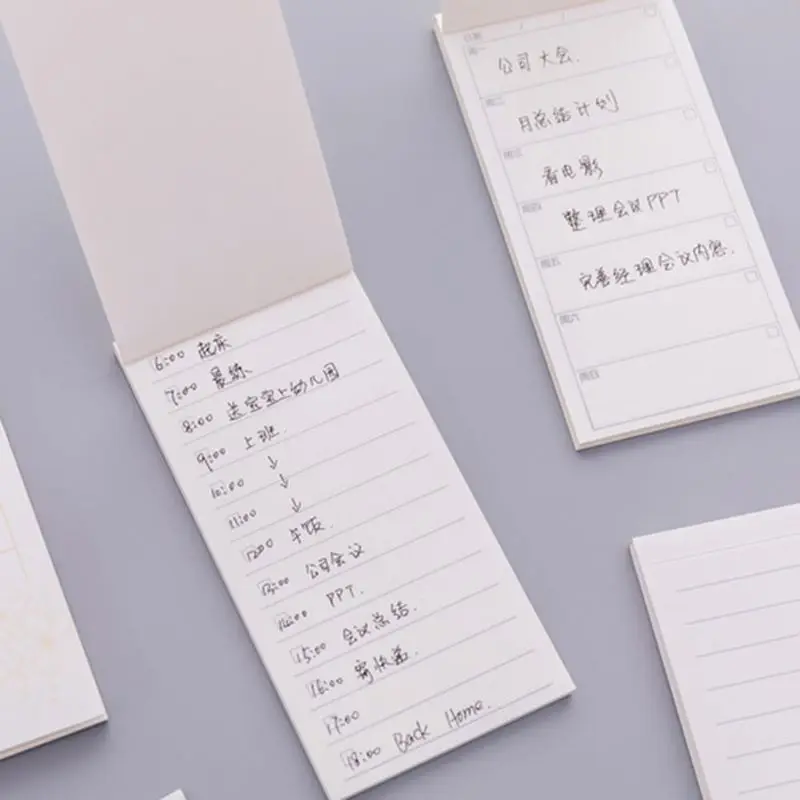 6:00 起床
7:00 晨练
8:00 送宝宝上幼儿园
9:00 上班.
10:00 ↓
↓
11:00 ↓
12:00 午饭.
13:00 公司会议
14:00 PPT.
15:00 会议总结.
16:00 寄快递.
17:00
18:00 Back Home.
日期 / /
周一
公司大会.
周二
月总结计划
周三
看电影
周四
整理会议PPT
周五
完善经理会议内容.
周六
周日